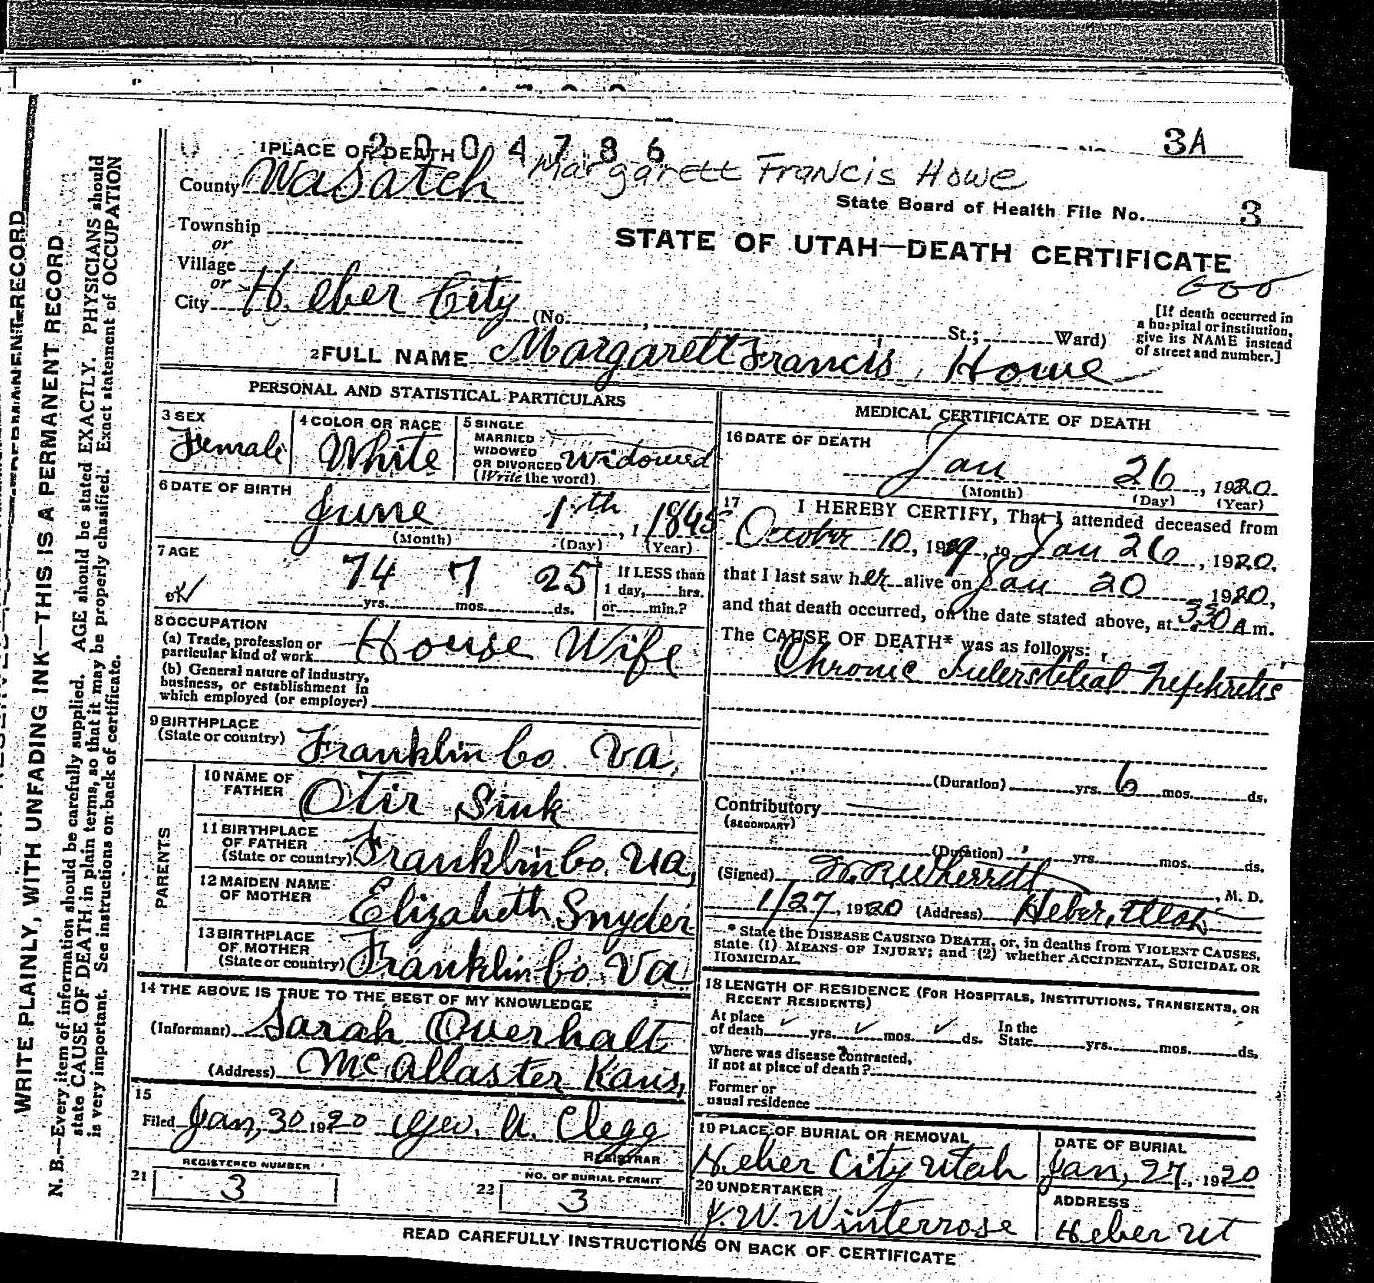 3A
2004786
1 PLACE OF DEATH
County Wasatch
Margarett Francis Howe
State Board of Health File No. 3
Township
or
Village
or
City Heber City (No. , St.; Ward)
STATE OF UTAH—DEATH CERTIFICATE
[If death occurred in
a hospital or institution,
give its NAME instead
of street and number.]
2 FULL NAME Margarett Francis Howe
PERSONAL AND STATISTICAL PARTICULARS
3 SEX
Female
4 COLOR OR RACE
White
5 SINGLE
MARRIED
WIDOWED
OR DIVORCED
(Write the word)
Widowed
6 DATE OF BIRTH
June 1th, 1845
(Month) (Day) (Year)
7 AGE
74 yrs. 7 mos. 25 ds.
If LESS than
1 day, hrs.
or min.?
8 OCCUPATION
(a) Trade, profession or
particular kind of work House Wife
(b) General nature of industry,
business, or establishment in
which employed (or employer)
9 BIRTHPLACE
(State or country) Franklin Co. Va.
PARENTS
10 NAME OF
FATHER Otir Sink
11 BIRTHPLACE
OF FATHER
(State or country) Franklin Co. Va,
12 MAIDEN NAME
OF MOTHER Elizabeth Snyder
13 BIRTHPLACE
OF MOTHER
(State or country) Franklin Co. Va.
14 THE ABOVE IS TRUE TO THE BEST OF MY KNOWLEDGE
(Informant) Sarah Overhalt
(Address) McAllaster Kans,
15
Filed Jan, 30 1920 Geo. A. Clegg
REGISTRAR
21 REGISTERED NUMBER
3
22 NO. OF BURIAL PERMIT
3
MEDICAL CERTIFICATE OF DEATH
16 DATE OF DEATH
Jan 26, 1920
(Month) (Day) (Year)
17 I HEREBY CERTIFY, That I attended deceased from
October 10, 1919, to Jan 26, 1920.
that I last saw her alive on Jan 20 1920,
and that death occurred, on the date stated above, at 3:30 A m.
The CAUSE OF DEATH* was as follows:
Chronic Interstitial Nephritis
(Duration) yrs. 6 mos. ds.
Contributory
(SECONDARY)
(Duration) yrs. mos. ds.
(Signed) W. R. Wherritt, M. D.
1/27, 1920 (Address) Heber, Utah
* State the DISEASE CAUSING DEATH, or, in deaths from VIOLENT CAUSES,
state (1) MEANS OF INJURY; and (2) whether ACCIDENTAL, SUICIDAL OR
HOMICIDAL.
18 LENGTH OF RESIDENCE (FOR HOSPITALS, INSTITUTIONS, TRANSIENTS, OR
RECENT RESIDENTS)
At place
of death yrs. mos. ds. In the
State yrs. mos. ds.
Where was disease contracted,
if not at place of death?
Former or
usual residence
19 PLACE OF BURIAL OR REMOVAL
Heber City Utah
DATE OF BURIAL
Jan, 27, 1920
20 UNDERTAKER
J. W. Winterrose
ADDRESS
Heber Ut
READ CAREFULLY INSTRUCTIONS ON BACK OF CERTIFICATE
WRITE PLAINLY, WITH UNFADING INK—THIS IS A PERMANENT RECORD
N. B.—Every item of information should be carefully supplied. AGE should be stated EXACTLY. PHYSICIANS should
state CAUSE OF DEATH in plain terms, so that it may be properly classified. Exact statement of OCCUPATION
is very important. See instructions on back of certificate.